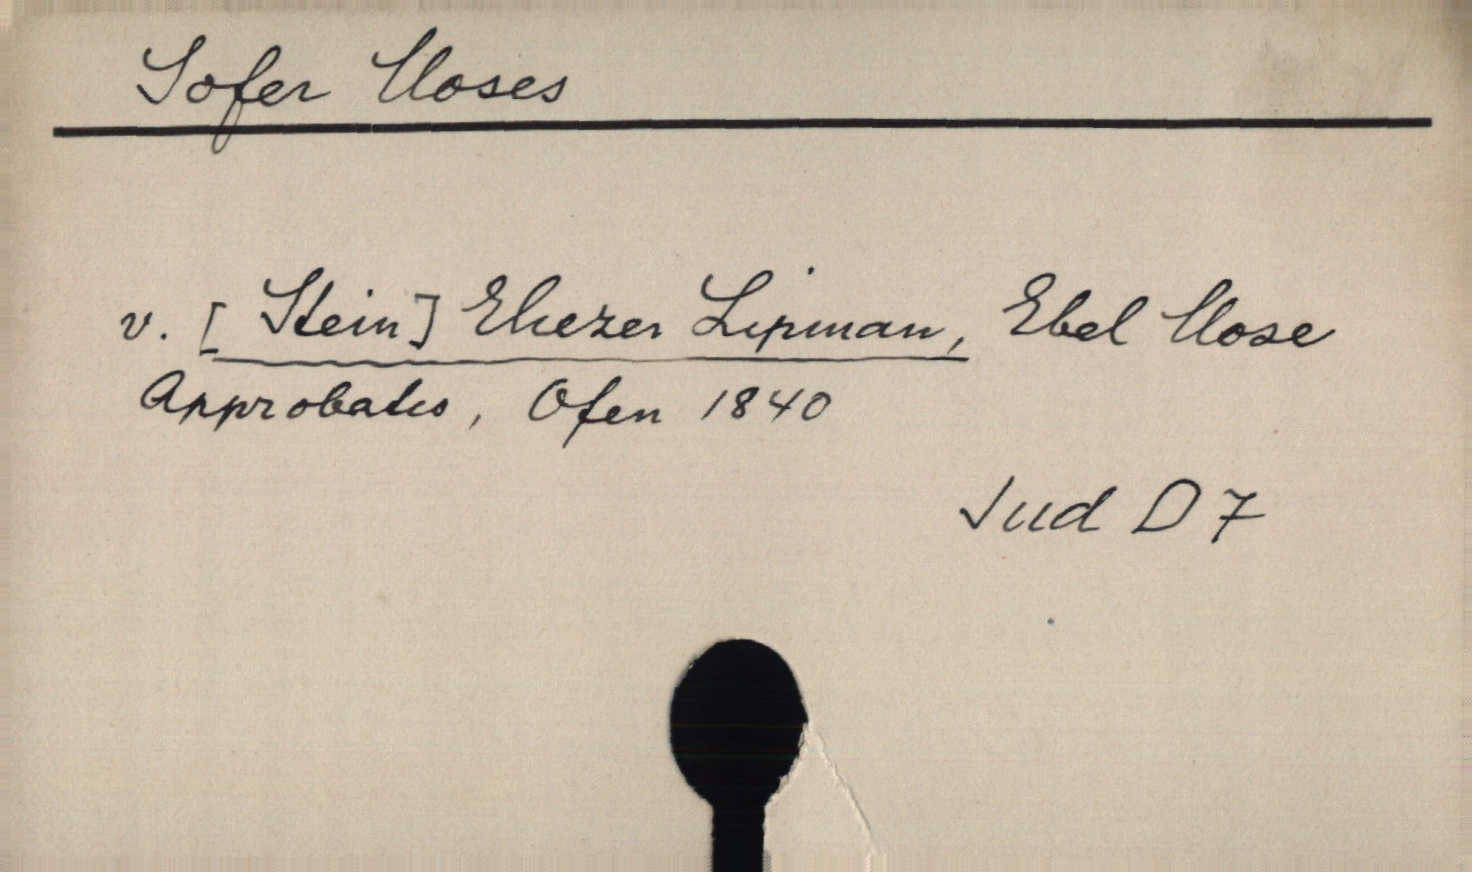 Sofer Moses
v. [Stein] Eliezer Lipman, Ebel Mose
Approbatio, Ofen 1840
Jud D 7